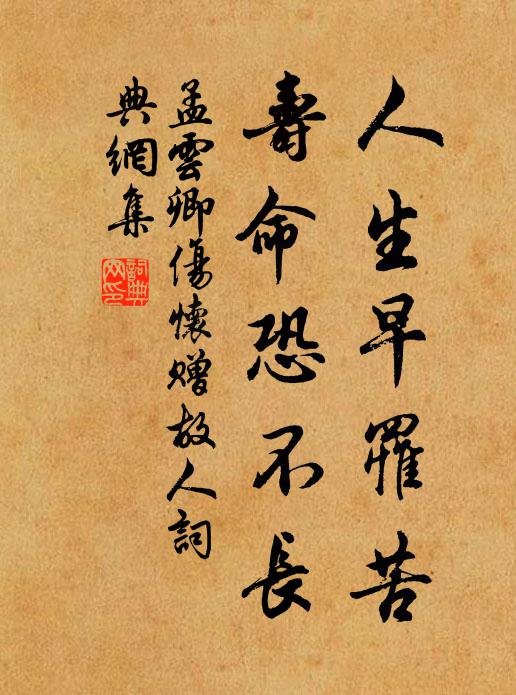 人生早罹苦
壽命恐不長
孟雲卿傷懷贈故人詞
典網集
詞典
网印